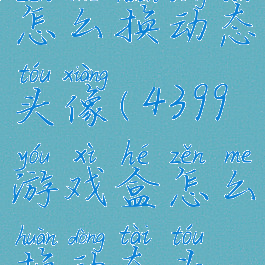 怎么换动态
tóu xiàng
头像(4399
yóu xì hé zěn me
游戏盒怎么
huàn dòng tài tóu